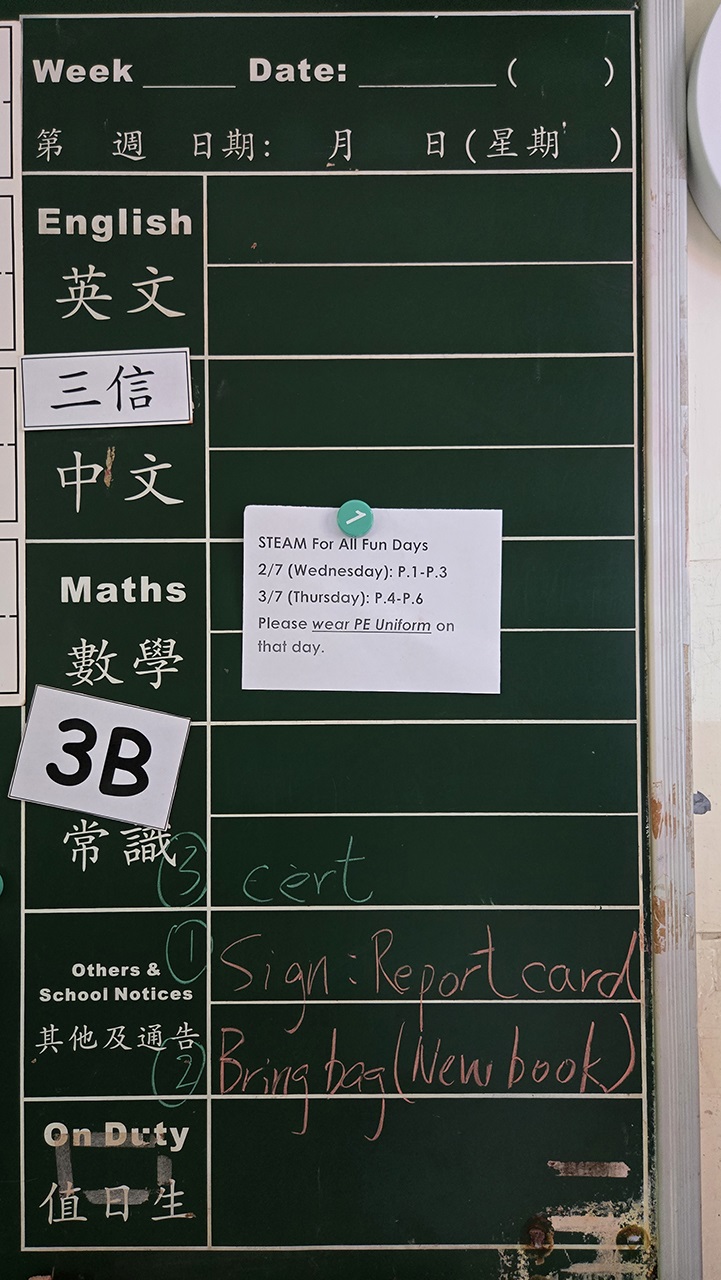 Week ____ Date: ________ (    )
第 週 日期: 月 日(星期 )
English
英文
三信
中文
STEAM For All Fun Days
2/7 (Wednesday): P.1-P.3
3/7 (Thursday): P.4-P.6
Please wear PE Uniform on
that day.
Maths
數學
3B
常識
③ cert
Others &
School Notices
其他及通告
① Sign: Report card
② Bring bag (New book)
On Duty
值日生